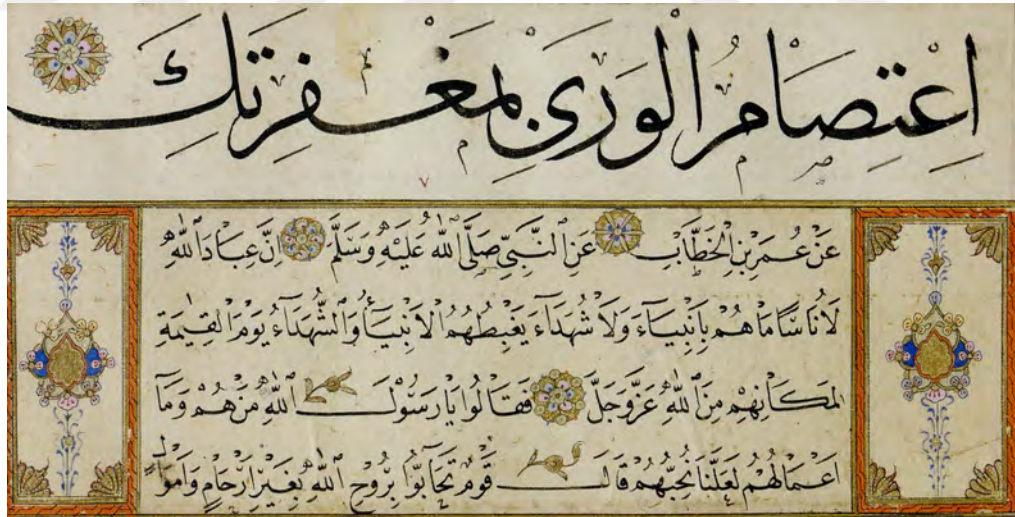 اِعْتِصَامُ الْوَرَىٰ بِمَغْفِرَتِكَ
عَنْ عُمَرَ بْنِ الْخَطَّابِ عَنِ ٱلنَّبِيِّ صَلَّى ٱللّٰهُ عَلَيْهِ وَسَلَّمَ اِنَّ عِبَادَ ٱللّٰهِ
لَأُنَاسًا مَا هُمْ بِاَنْبِيَاءَ وَلَا شُهَدَاءَ يَغْبِطُهُمُ الْاَنْبِيَاءُ وَٱلشُّهَدَاءُ يَوْمَ الْقِيٰمَةِ
لِمَكَانِهِمْ مِنَ ٱللّٰهِ عَزَّ وَجَلَّ فَقَالُوا يَا رَسُوْلَ ٱللّٰهِ مَنْ هُمْ وَمَا
اَعْمَالُهُمْ لَعَلَّنَا نُحِبُّهُمْ قَالَ قَوْمٌ تَحَابُّوا بِرُوْحِ ٱللّٰهِ بِغَيْرِ اَرْحَامٍ وَاَمْوَالٍ